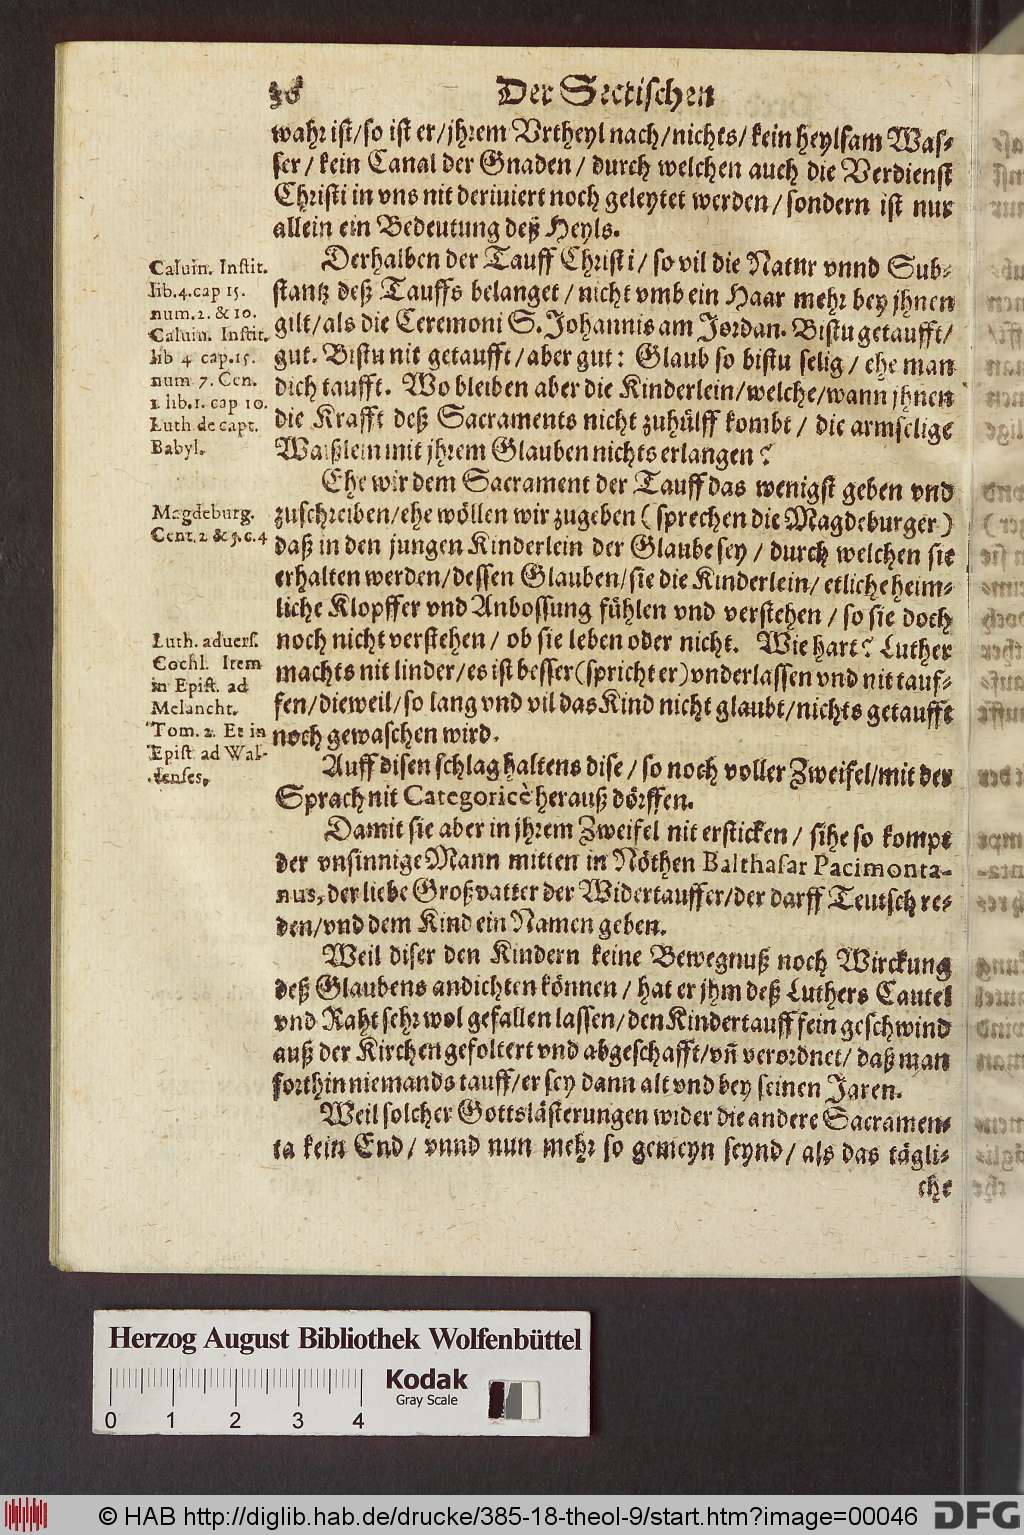 36 Der Sectischen
wahr ist/so ist er/jhrem Vrtheyl nach/nichts/kein heylsam Was-
ser/kein Canal der Gnaden/durch welchen auch die Verdienst
Christi in vns nit deriuiert noch geleytet werden/sondern ist nur
allein ein Bedeutung deß Heyls.
Derhalben der Tauff Christi/so vil die Natur vnnd Sub-
stantz deß Tauffs belanget/nicht vmb ein Haar mehr bey jhnen
gilt/als die Ceremoni S. Johannis am Jordan. Bistu getaufft/
gut. Bistu nit getaufft/aber gut: Glaub so bistu selig/ehe man
dich taufft. Wo bleiben aber die Kinderlein/welche/wann jhnen
die Krafft deß Sacraments nicht zuhülff kombt/die armselige
Waißlein mit jhrem Glauben nichts erlangen?
Caluin. Instit.
lib.4.cap 15.
num.2. & 10.
Caluin. Instit.
lib 4 cap.15.
num 7. Cen.
2 lib.1. cap 10.
Luth de capt.
Babyl.
Ehe wir dem Sacrament der Tauff das wenigst geben vnd
zuschreiben/ehe wöllen wir zugeben (sprechen die Magdeburger)
daß in den jungen Kinderlein der Glaube sey/durch welchen sie
erhalten werden/dessen Glauben/sie die Kinderlein/etliche heim-
liche Klopffer vnd Anbossung fühlen vnd verstehen/so sie doch
noch nicht verstehen/ob sie leben oder nicht. Wie hart? Luther
machts nit linder/es ist besser (spricht er) vnderlassen vnd nit tauf-
fen/dieweil/so lang vnd vil das Kind nicht glaubt/nichts getaufft
noch gewaschen wird.
Magdeburg.
Cent. 2 & 5. c. 4
Luth. aduers.
Cochl. Item
in Epist. ad
Melancht.
Tom. 2. Et in
Epist ad Wal-
denses.
Auff disen schlag haltens dise/so noch voller Zweifel/mit der
Sprach nit Categoricè herauß dörffen.
Damit sie aber in jhrem Zweifel nit ersticken/sihe so kompt
der vnsinnige Mann mitten in Nöthen Balthasar Pacimonta-
nus, der liebe Großvatter der Widertauffer/der darff Teutsch re-
den/vnd dem Kind ein Namen geben.
Weil diser den Kindern keine Bewegnuß noch Wirckung
deß Glaubens andichten können/hat er jhm deß Luthers Cautel
vnd Raht sehr wol gefallen lassen/den Kindertauff fein geschwind
auß der Kirchen gefoltert vnd abgeschafft/vñ verordnet/daß man
forthin niemands tauff/er sey dann alt vnd bey seinen Jaren.
Weil solcher Gottslästerungen wider die andere Sacramen-
ta kein End/vnnd nun mehr so gemeyn seynd/als das tägli-
che
Herzog August Bibliothek Wolfenbüttel
Kodak
Gray Scale
0 1 2 3 4
© HAB http://diglib.hab.de/drucke/385-18-theol-9/start.htm?image=00046 DFG